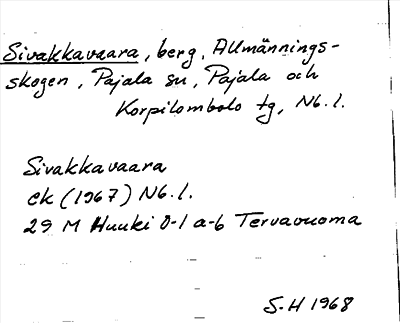 Sivakkavaara, berg, Allmännings-
skogen, Pajala sn, Pajala och
Korpilombolo tg, Nb. l.
Sivakkavaara
ek (1967) Nb. l.
29 M Huuki 0-1 a-b Tervavuoma
S-H 1968